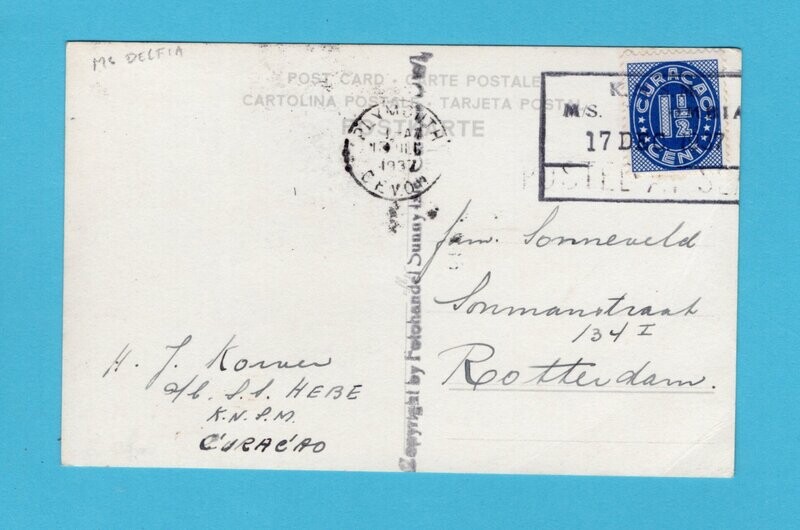 MS DELFIA
POST CARD · CARTE POSTALE
CARTOLINA POSTALE · TARJETA POSTAL
POSTKARTE
PLYMOUTH
1937
DEVON
K.
M/S.
17 DEC
CURACAO
1½
CENT
Copyright by Fotohandel Sunny
Fam. Sonneveld
Sonmanstraat
134 I
Rotterdam.
H. J. Korver
a/b S.S. HEBE
K.N.S.M.
CURAÇAO